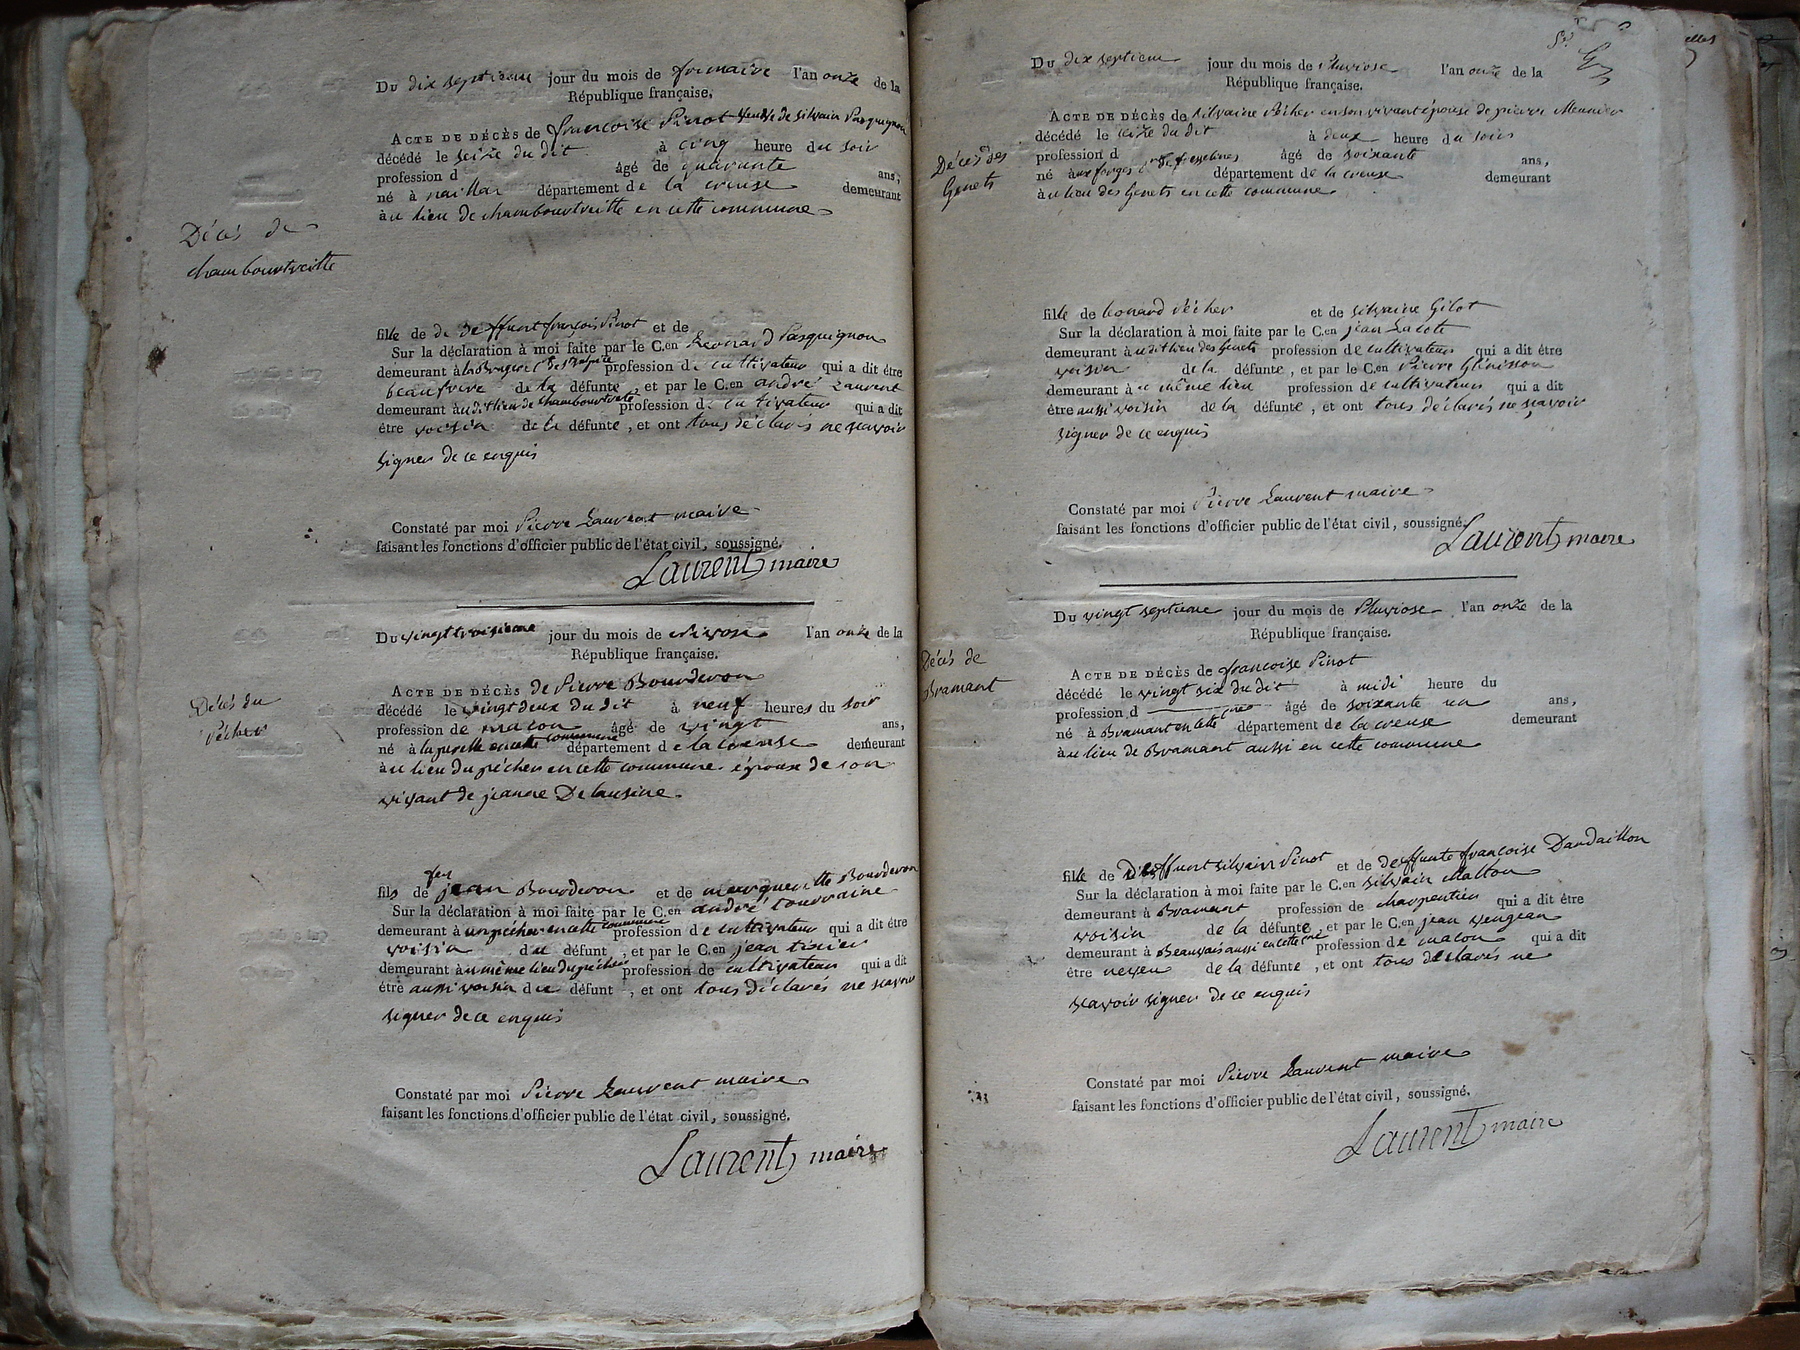 Du dix septieme jour du mois de frimaire l'an onze de la
République française.
ACTE DE DÉCÈS de francoise Pinot veuve de silvain Pasquignon
décédé le seize du dit à cinq heure du soir
profession d âgé de quarante ans,
né à naillat département de la creuse demeurant
à au lieu de chambourtveitte en cette commune
Décés de
chambourtveitte
fille de de deffunt françois Pinot et de
Sur la déclaration à moi faite par le C.en Leonard Pasquignon
demeurant à profession de cultivateur qui a dit être
beaufrere de la défunte, et par le C.en andré Laurent
demeurant à udit lieu de chambourtveite profession de cultivateur qui a dit
être voisin de la défunte, et ont tous déclarés ne sçavoir
signer de ce enquis
Constaté par moi Pierre Laurent maire
faisant les fonctions d'officier public de l'état civil, soussigné.
Laurent maire
Du vingt troisieme jour du mois de nivose l'an onze de la
République française.
ACTE DE DÉCÈS de Pierre Bourderon
décédé le vingt deux du dit à neuf heures du soir
profession de macon âgé de vingt ans,
né à en cette commune département de la creuse demeurant
à au lieu du pécher en cette commune époux de son
vivant de jeanne Delausine.
Décés du
Pécher
fils de feu jean Bourderon et de marguerithe Bourderon
Sur la déclaration à moi faite par le C.en andré touvraine
demeurant à un pécher en cette commune profession de cultivateur qui a dit être
voisin du défunt, et par le C.en jean tixier
demeurant à u même lieu du pécher profession de cultivateur qui a dit
être aussi voisin due défunt, et ont tous déclarés ne scavoir
signer de ce enquis
Constaté par moi Pierre Laurent maire
faisant les fonctions d'officier public de l'état civil, soussigné.
Laurent maire
Du dix septieme jour du mois de Pluviose l'an onze de la
République française.
ACTE DE DÉCÈS de silvaine Pécher en son vivant épouse de pierre Meunier
décédé le seize du dit à deux heure du soir
profession d âgé de soixante ans,
né à ux forges département de la creuse demeurant
à au lieu des Genets en cette commune
Décés des
Genets
fille de Leonard Pécher et de silvaine Gilot
Sur la déclaration à moi faite par le C.en jean Lacote
demeurant à udit lieu des Genets profession de cultivateur qui a dit être
voisin de la défunte, et par le C.en Pierre Glénisson
demeurant à ce même lieu profession de cultivateur qui a dit
être aussi voisin de la défunte, et ont tous déclarés ne sçavoir
signer de ce enquis
Constaté par moi Pierre Laurent maire
faisant les fonctions d'officier public de l'état civil, soussigné.
Laurent maire
Du vingt septieme jour du mois de Pluviose l'an onze de la
République française.
ACTE DE DÉCÈS de francoise Pinot
décédé le vingt six du dit à midi heure du
profession d âgé de soixante un ans,
né à Bramant en cette cne département de la creuse demeurant
à au lieu de Bramant aussi en cette commune
Décés de
Bramant
fille de Deffunt silvain Pinot et de deffunte françoise Dardaillon
Sur la déclaration à moi faite par le C.en silvain Malton
demeurant à Bramant profession de charpentier qui a dit être
voisin de la défunte, et par le C.en jean vengean
demeurant à Beauvais aussi en cette cne profession de macon qui a dit
être neveu de la défunte, et ont tous déclarés ne
scavoir signer de ce enquis
Constaté par moi Pierre Laurent maire
faisant les fonctions d'officier public de l'état civil, soussigné.
Laurent maire